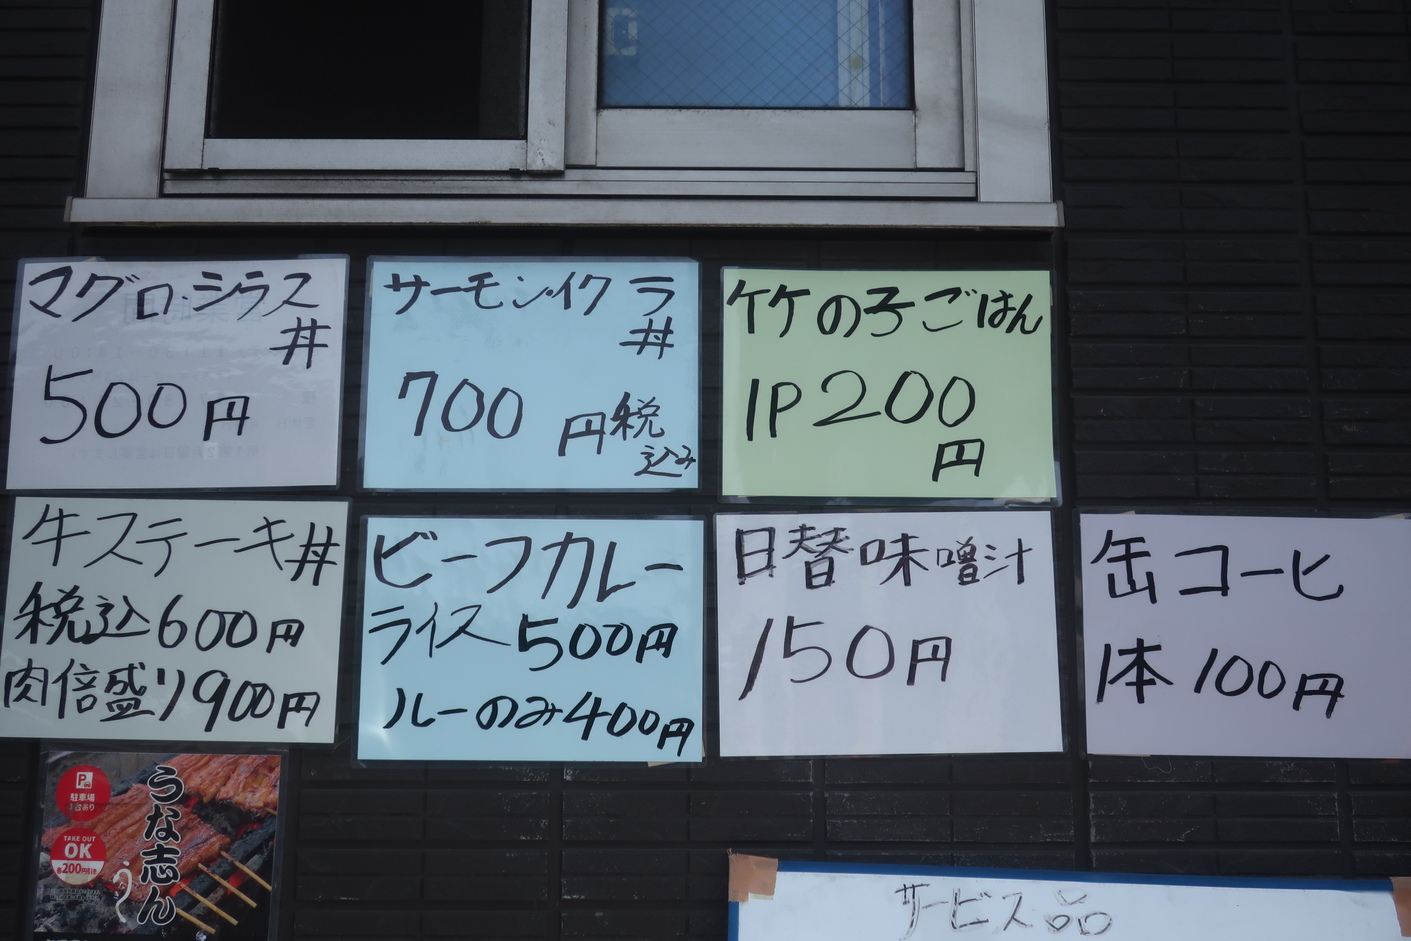 マグロ・シラス
丼
500円
サーモン・イクラ
丼
700円税
込み
竹の子ごはん
1P200
円
牛ステーキ丼
税込600円
肉倍盛り900円
ビーフカレー
ライス500円
ルーのみ400円
日替味噌汁
150円
缶コーヒ
1本100円
P
駐車場
TAKE OUT
OK
各200円引き
うな志ん
サービス品